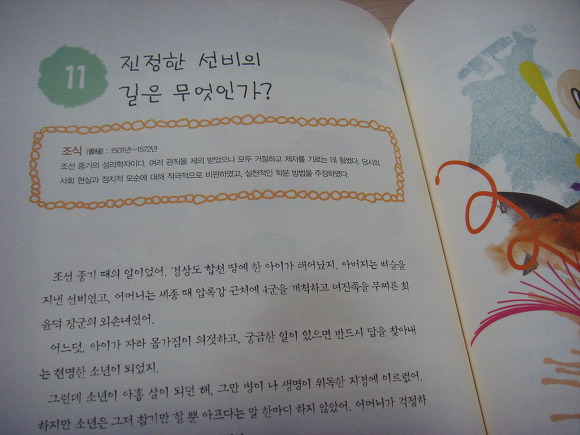 11
진정한 선비의
길은 무엇인가?
조식 (曺植) : 1501년~1572년
조선 중기의 성리학자이다. 여러 관직을 제의 받았으나 모두 거절하고 제자를 기르는 데 힘썼다. 당시의
사회 현실과 정치적 모순에 대해 적극적으로 비판하였고, 실천적인 학문 방법을 주장하였다.
조선 중기 때의 일이었어. 경상도 합천 땅에 한 아이가 태어났지. 아버지는 벼슬을
지낸 선비였고, 어머니는 세종 때 압록강 근처에 4군을 개척하고 여진족을 무찌른 최
윤덕 장군의 외손녀였어.
어느덧, 아이가 자라 몸가짐이 의젓하고, 궁금한 일이 있으면 반드시 답을 찾아내
는 현명한 소년이 되었지.
그런데 소년이 아홉 살이 되던 해, 그만 병이 나 생명이 위독한 지경에 이르렀어.
하지만 소년은 그저 참기만 할 뿐 아프다는 말 한마디 하지 않았어. 어머니가 걱정하